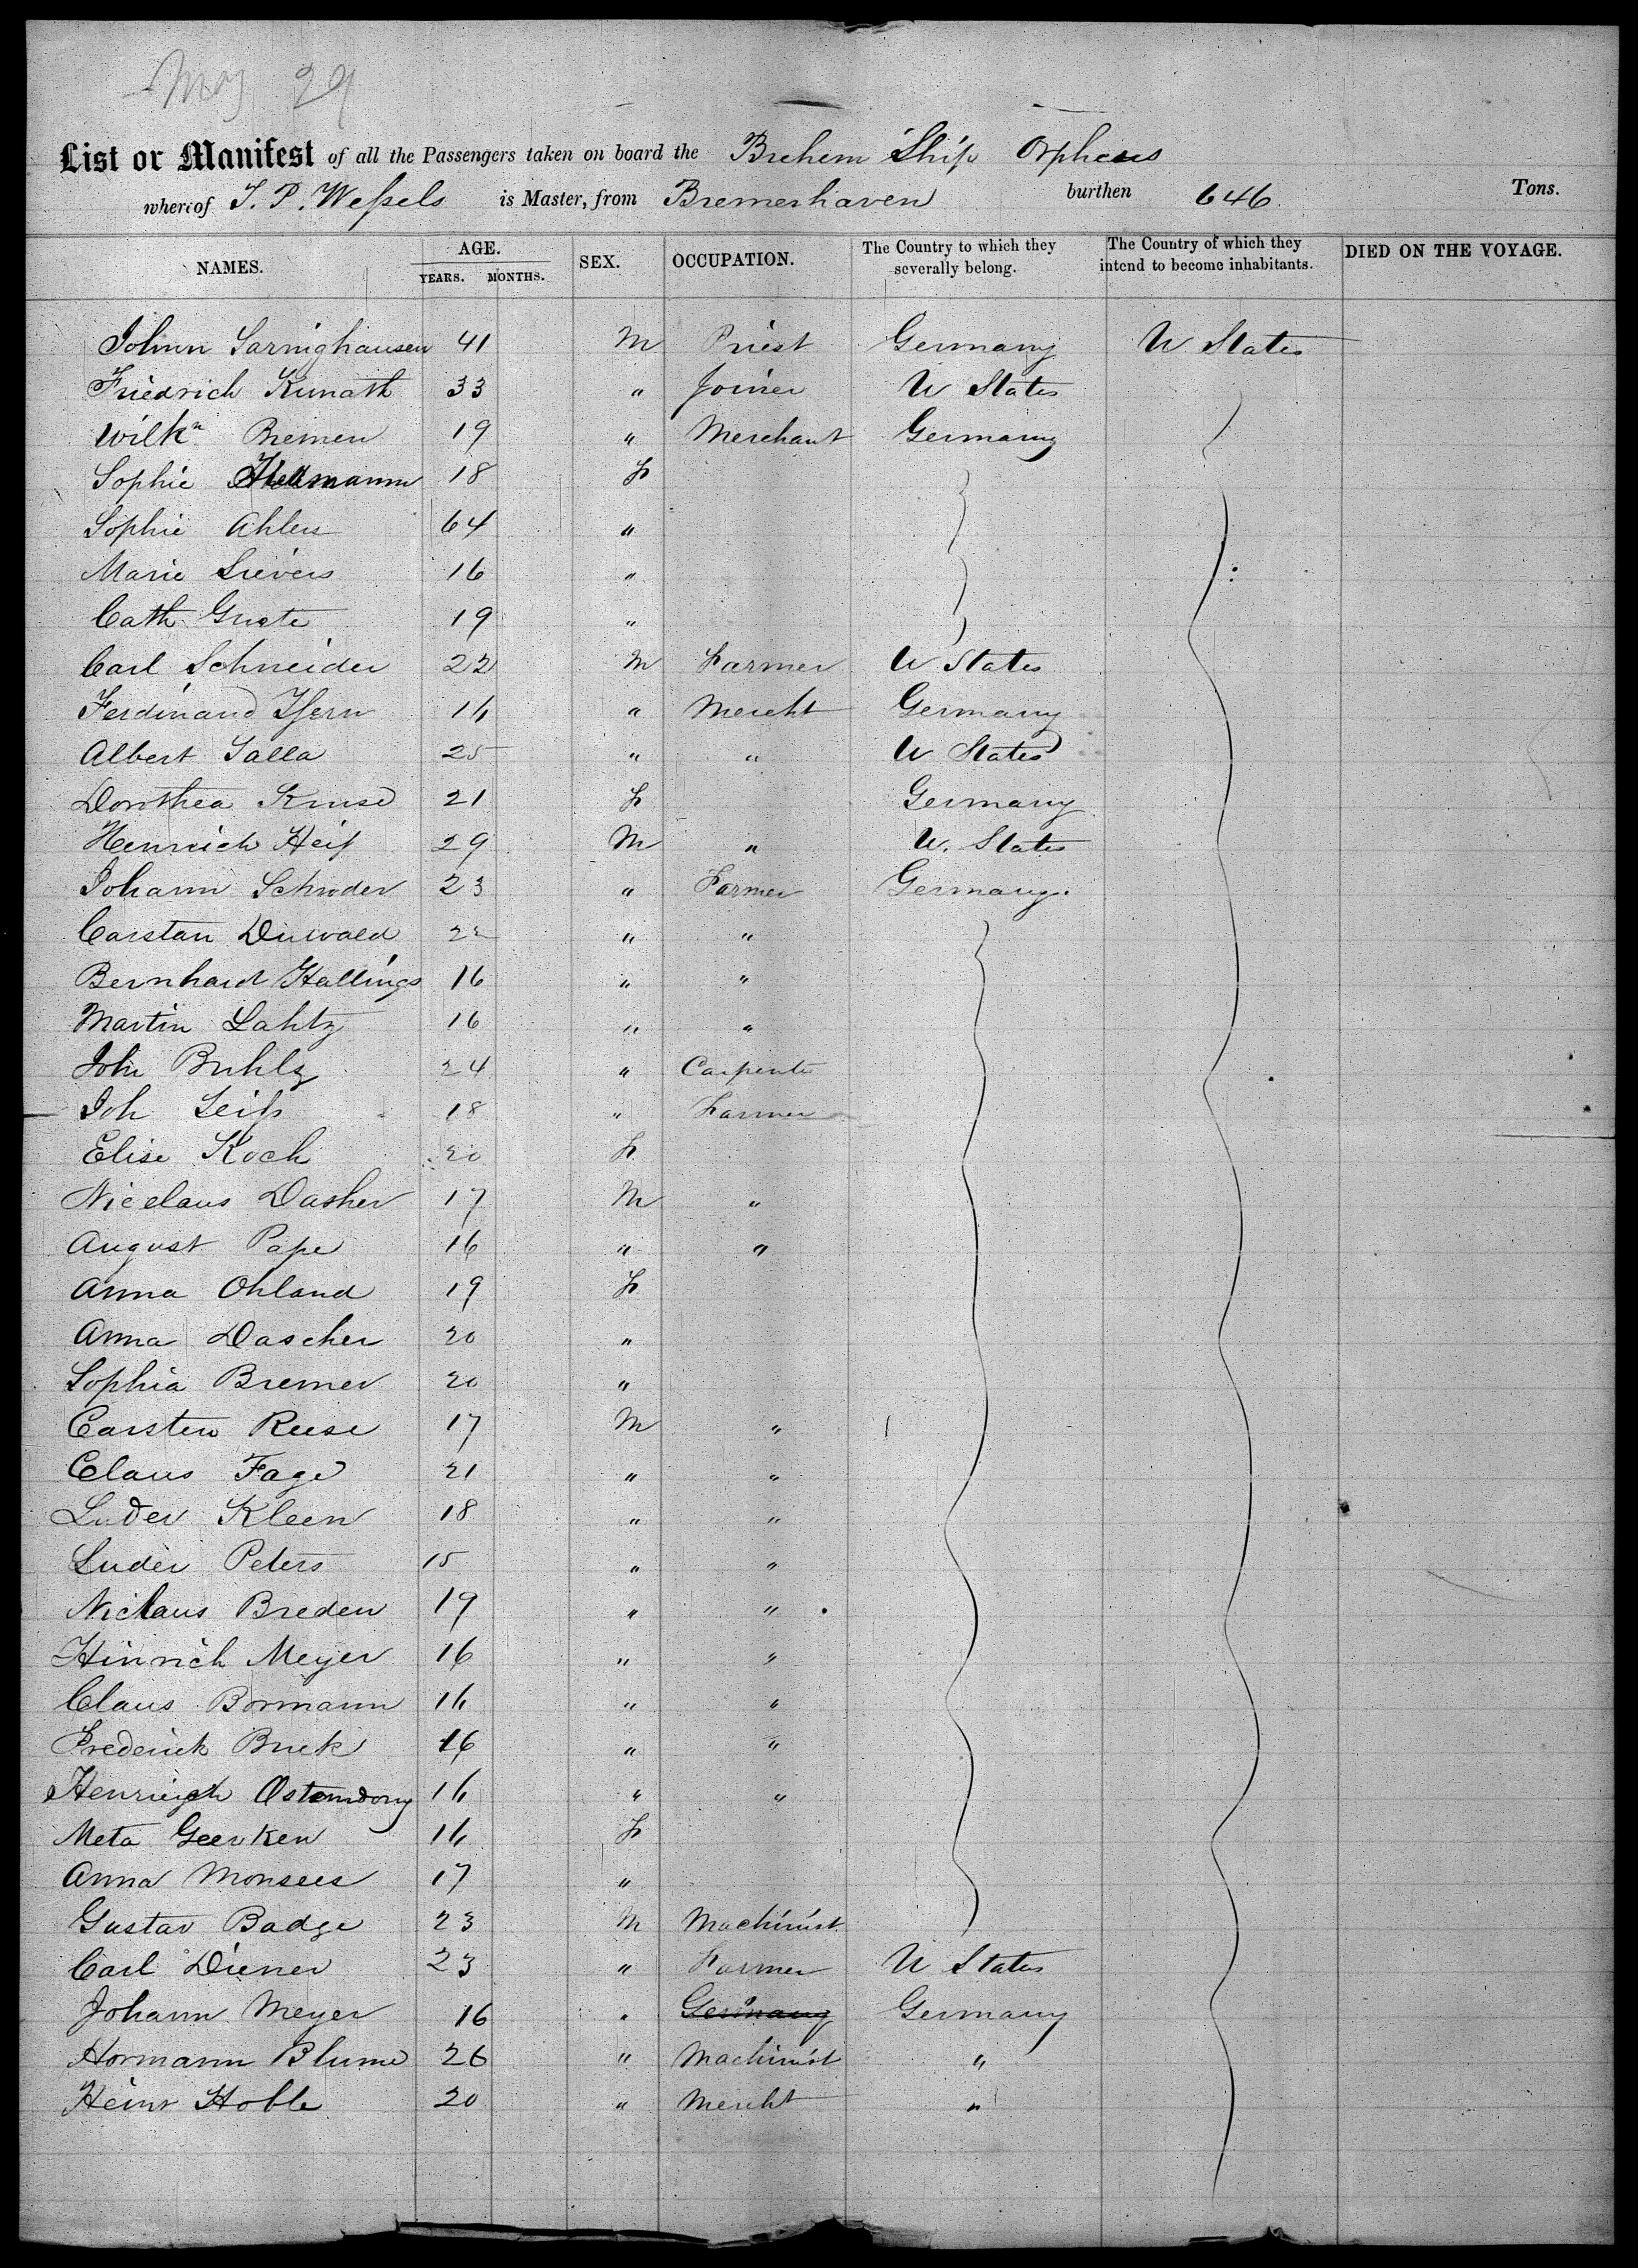 May 29
List or Manifest of all the Passengers taken on board the Brehem Ship Orpheus
whereof J. P. Wessels is Master, from Bremerhaven burthen 646 Tons.
NAMES. AGE. YEARS. MONTHS. SEX. OCCUPATION. The Country to which they severally belong. The Country of which they intend to become inhabitants. DIED ON THE VOYAGE.
Johnn Saringhausen 41 M Priest Germany U States
Friedrich Kunath 33 " Joiner U States
Wilhn Bremen 19 " Merchant Germany
Sophie 18 F
Sophie Ahlers 64 "
Marie Sievers 16 "
Cath Grote 19 "
Carl Schneider 22 M Farmer U States
Ferdinand Isern 16 " Mercht Germany
Albert Salla 25 " " U States
Dorothea Kruse 21 F Germany
Henrich Heiß 29 M " U. States
Johann Schroder 23 " Farmer Germany.
Carstan Duwald 22 " "
Bernhard Hallings 16 " "
Martin Lahtz 16 " "
John Buhlz 24 " Carpente
Joh Seiß 18 " Farmer
Elise Koch 20 F
Nicolaus Dasher 17 M "
August Pape 16 " "
Anna Ohland 19 F
Anna Dascher 20 "
Sophia Bremer 20 "
Carsten Reese 17 M "
Claus Fage 21 " "
Luder Kleen 18 " "
Luder Peters 15 " "
Niclaus Breden 19 " "
Hinrich Meyer 16 " "
Claus Bormann 16 " "
Frederick Buck 16 " "
Henriegh Ostemdorg 16 " "
Meta Geerken 16 F
Anna Monsees 17 "
Gustav Badge 23 M Machinist
Carl Diener 23 " Farmer U States
Johann Meyer 16 " Germany Germany
Hormann Blume 26 " Machinist "
Heinr Hoble 20 " Mercht "